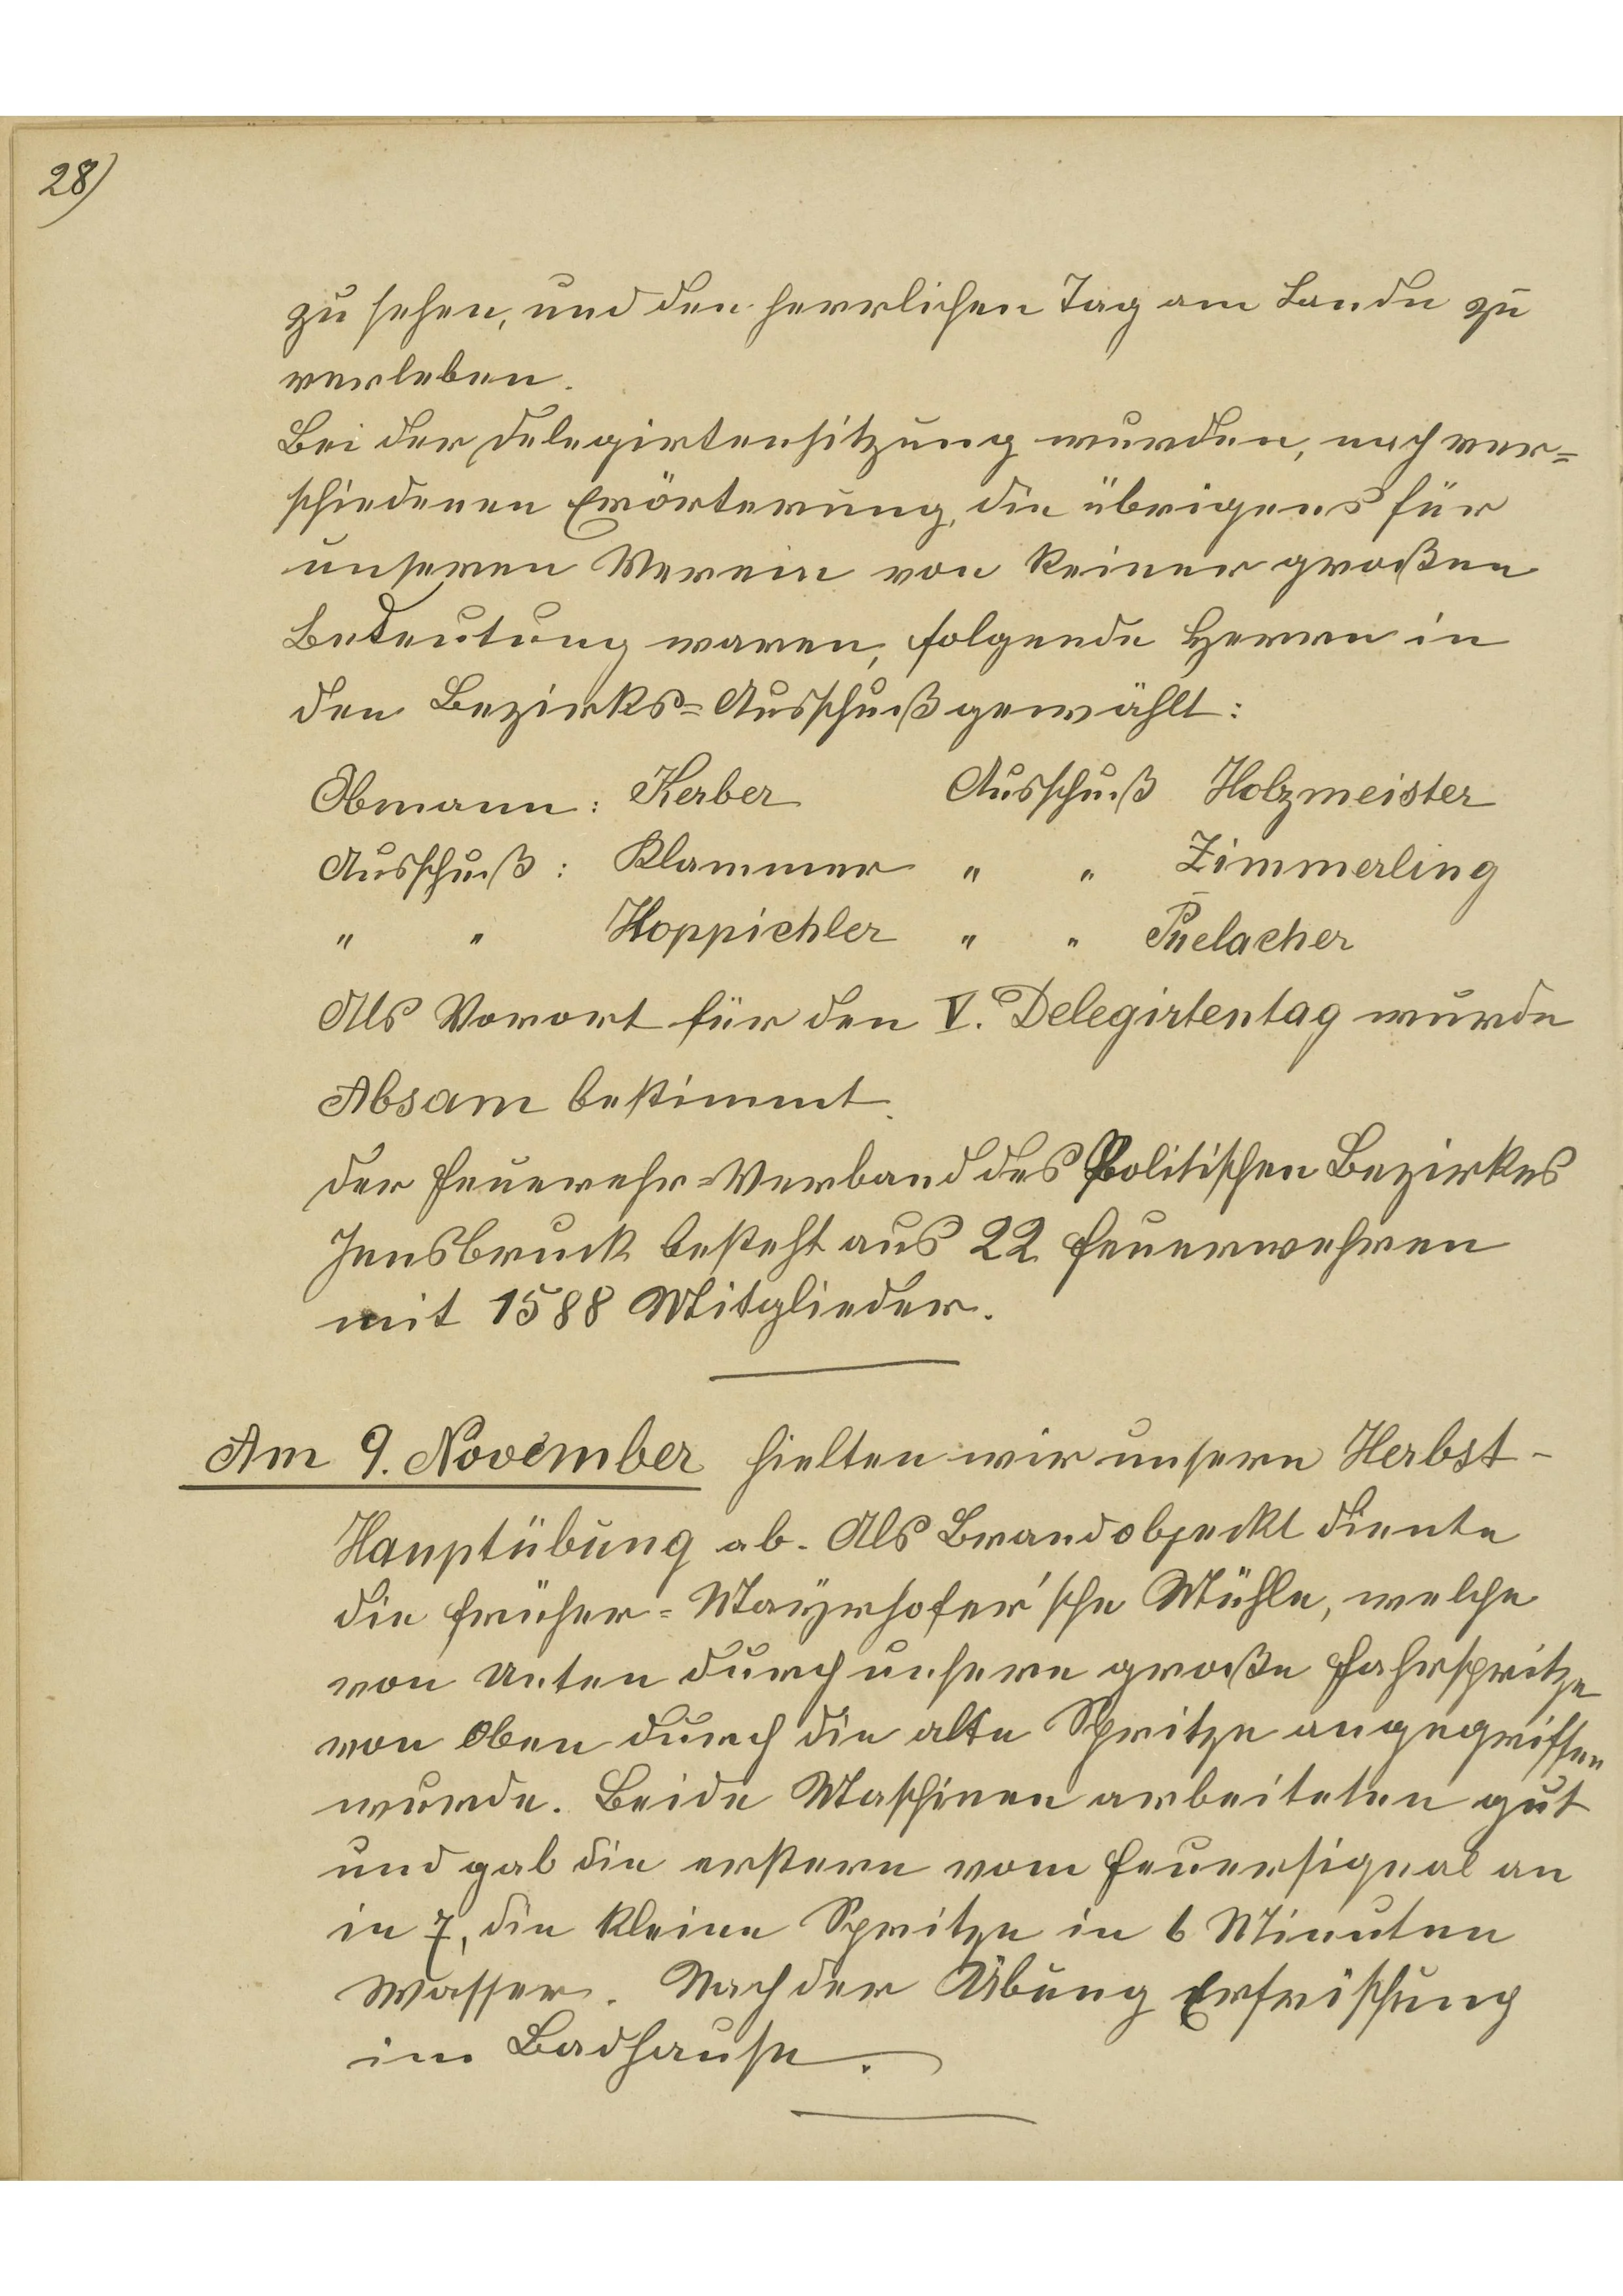 28)
zu sehen, und den herrlichen Tag am Lande zu
verleben.
Bei der Delegirtensitzung wurden, nach ver=
schiedenen Erörterung, die übrigens für
unseren Verein von keiner großen
Bedeutung waren, folgende Herren in
den Bezirks=Ausschuß gewählt:
Obmann: Kerber Ausschuß Holzmeister
Ausschuß: Klammer " " Zimmerling
" " Hoppichler " " Püelacher
Als Vorort für den V. Delegirtentag wurde
Absam bestimmt.
Der Feuerwehr=Verband des Politischen Bezirkes
Innsbruck besteht aus 22 Feuerwehren
mit 1588 Mitglieder.
Am 9. November hielten wir unsere Herbst-
Hauptübung ab. Als Brandobjeckt diente
die früher=Mayrhofer'sche Mühle, welche
von Unten durch unsere große Fahrspritze
von Oben durch die alte Spritze angegriffen
wurde. Beide Maschinen arbeiteten gut
und gab die erstere vom Feuersignal an
in 7, die kleine Spritze in 6 Minuten
Wasser. Nach der Übung Erfrischung
im Badhause.